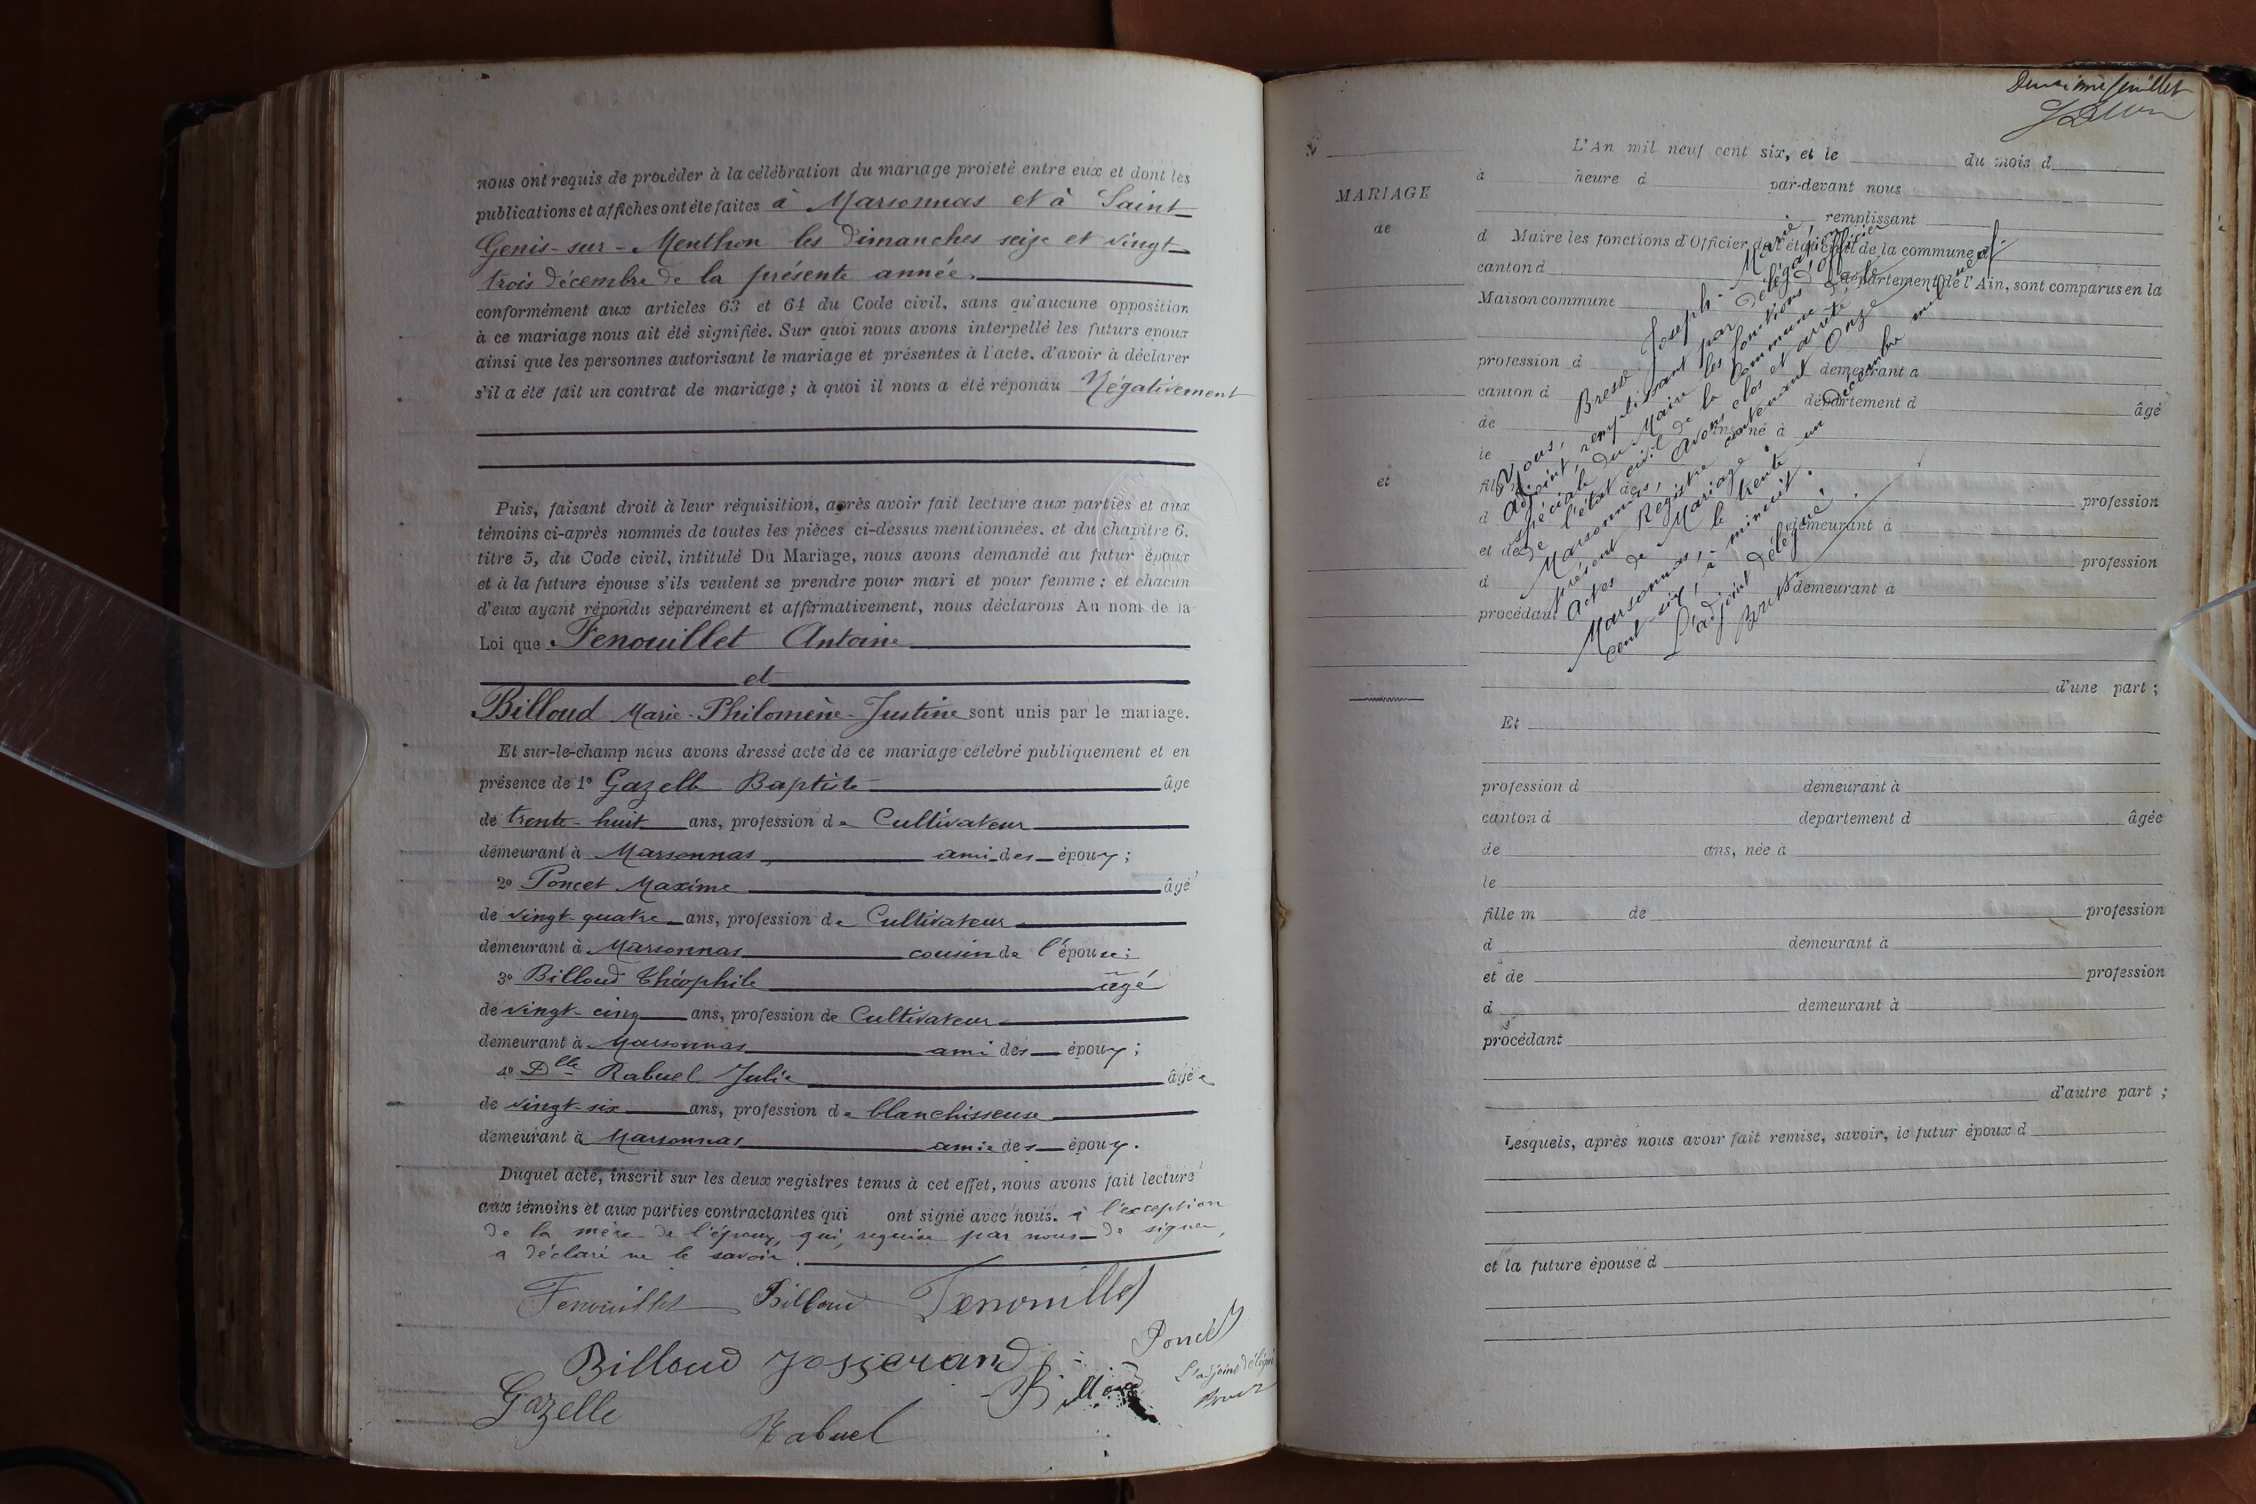 nous ont requis de procéder à la célébration du mariage projeté entre eux et dont les
publications et affiches ont été faites à Marsonnas et à Saint-
Genis-sur-Menthon les dimanches seize et vingt-
trois décembre de la présente année.
conformément aux articles 63 et 64 du Code civil, sans qu'aucune opposition
à ce mariage nous ait été signifiée. Sur quoi nous avons interpellé les futurs époux
ainsi que les personnes autorisant le mariage et présentes à l'acte, d'avoir à déclarer
s'il a été fait un contrat de mariage ; à quoi il nous a été répondu Négativement
Puis, faisant droit à leur réquisition, après avoir fait lecture aux parties et aux
témoins ci-après nommés de toutes les pièces ci-dessus mentionnées, et du chapitre 6,
titre 5, du Code civil, intitulé Du Mariage, nous avons demandé au futur époux
et à la future épouse s'ils veulent se prendre pour mari et pour femme ; et chacun
d'eux ayant répondu séparément et affirmativement, nous déclarons Au nom de la
Loi que Fenouillet Antoine
et
Billoud Marie-Philomène-Justine sont unis par le mariage.
Et sur-le-champ nous avons dressé acte de ce mariage célébré publiquement et en
présence de 1º Gazelle Baptiste âgé
de trente-huit ans, profession de Cultivateur
demeurant à Marsonnas, ami des époux ;
2º Poncet Maxime âgé
de vingt-quatre ans, profession de Cultivateur
demeurant à Marsonnas cousin de l'épouse ;
3º Billoud Théophile âgé
de vingt-cinq ans, profession de Cultivateur
demeurant à Marsonnas ami des époux ;
4º Dlle Rabuel Julie âgée
de vingt-six ans, profession de blanchisseuse
demeurant à Marsonnas amie des époux.
Duquel acte, inscrit sur les deux registres tenus à cet effet, nous avons fait lecture
aux témoins et aux parties contractantes qui ont signé avec nous. à l'exception
de la mère de l'époux, qui, requise par nous de signer,
a déclaré ne le savoir.
Fenouillet Billoud Fenouillet
Poncet
Billoud Josserand Billoud
L'adjoint délégué
Gazelle
Rabuel
Deuxième feuillet
L'An mil neuf cent six, et le du mois d
à heure d par-devant nous
MARIAGE
remplissant
de
d Maire les fonctions d'Officier de l'état civil de la commune d
canton d département de l'Ain, sont comparus en la
Maison commune
profession d demeurant à
canton d département d âgé
de ans, né à
le
et
fils m
profession
d demeurant à
et de profession
d demeurant à
procédant
Nous, Bresse Joseph-Marie,
adjoint, remplissant par délégation
spéciale du Maire les fonctions d'officier
de l'état civil de la Commune de
Marsonnas, avons clos et arrêté le
présent Registre contenant Onze
Actes de Mariage.
Marsonnas, le trente un Décembre mil neuf
cent six, à minuit.
L'adjoint délégué,
d'une part ;
Et
profession d demeurant à
canton d département d âgée
de ans, née à
le
fille m de profession
d demeurant à
et de profession
d demeurant à
procédant
d'autre part ;
Lesquels, après nous avoir fait remise, savoir, le futur époux d
et la future épouse d